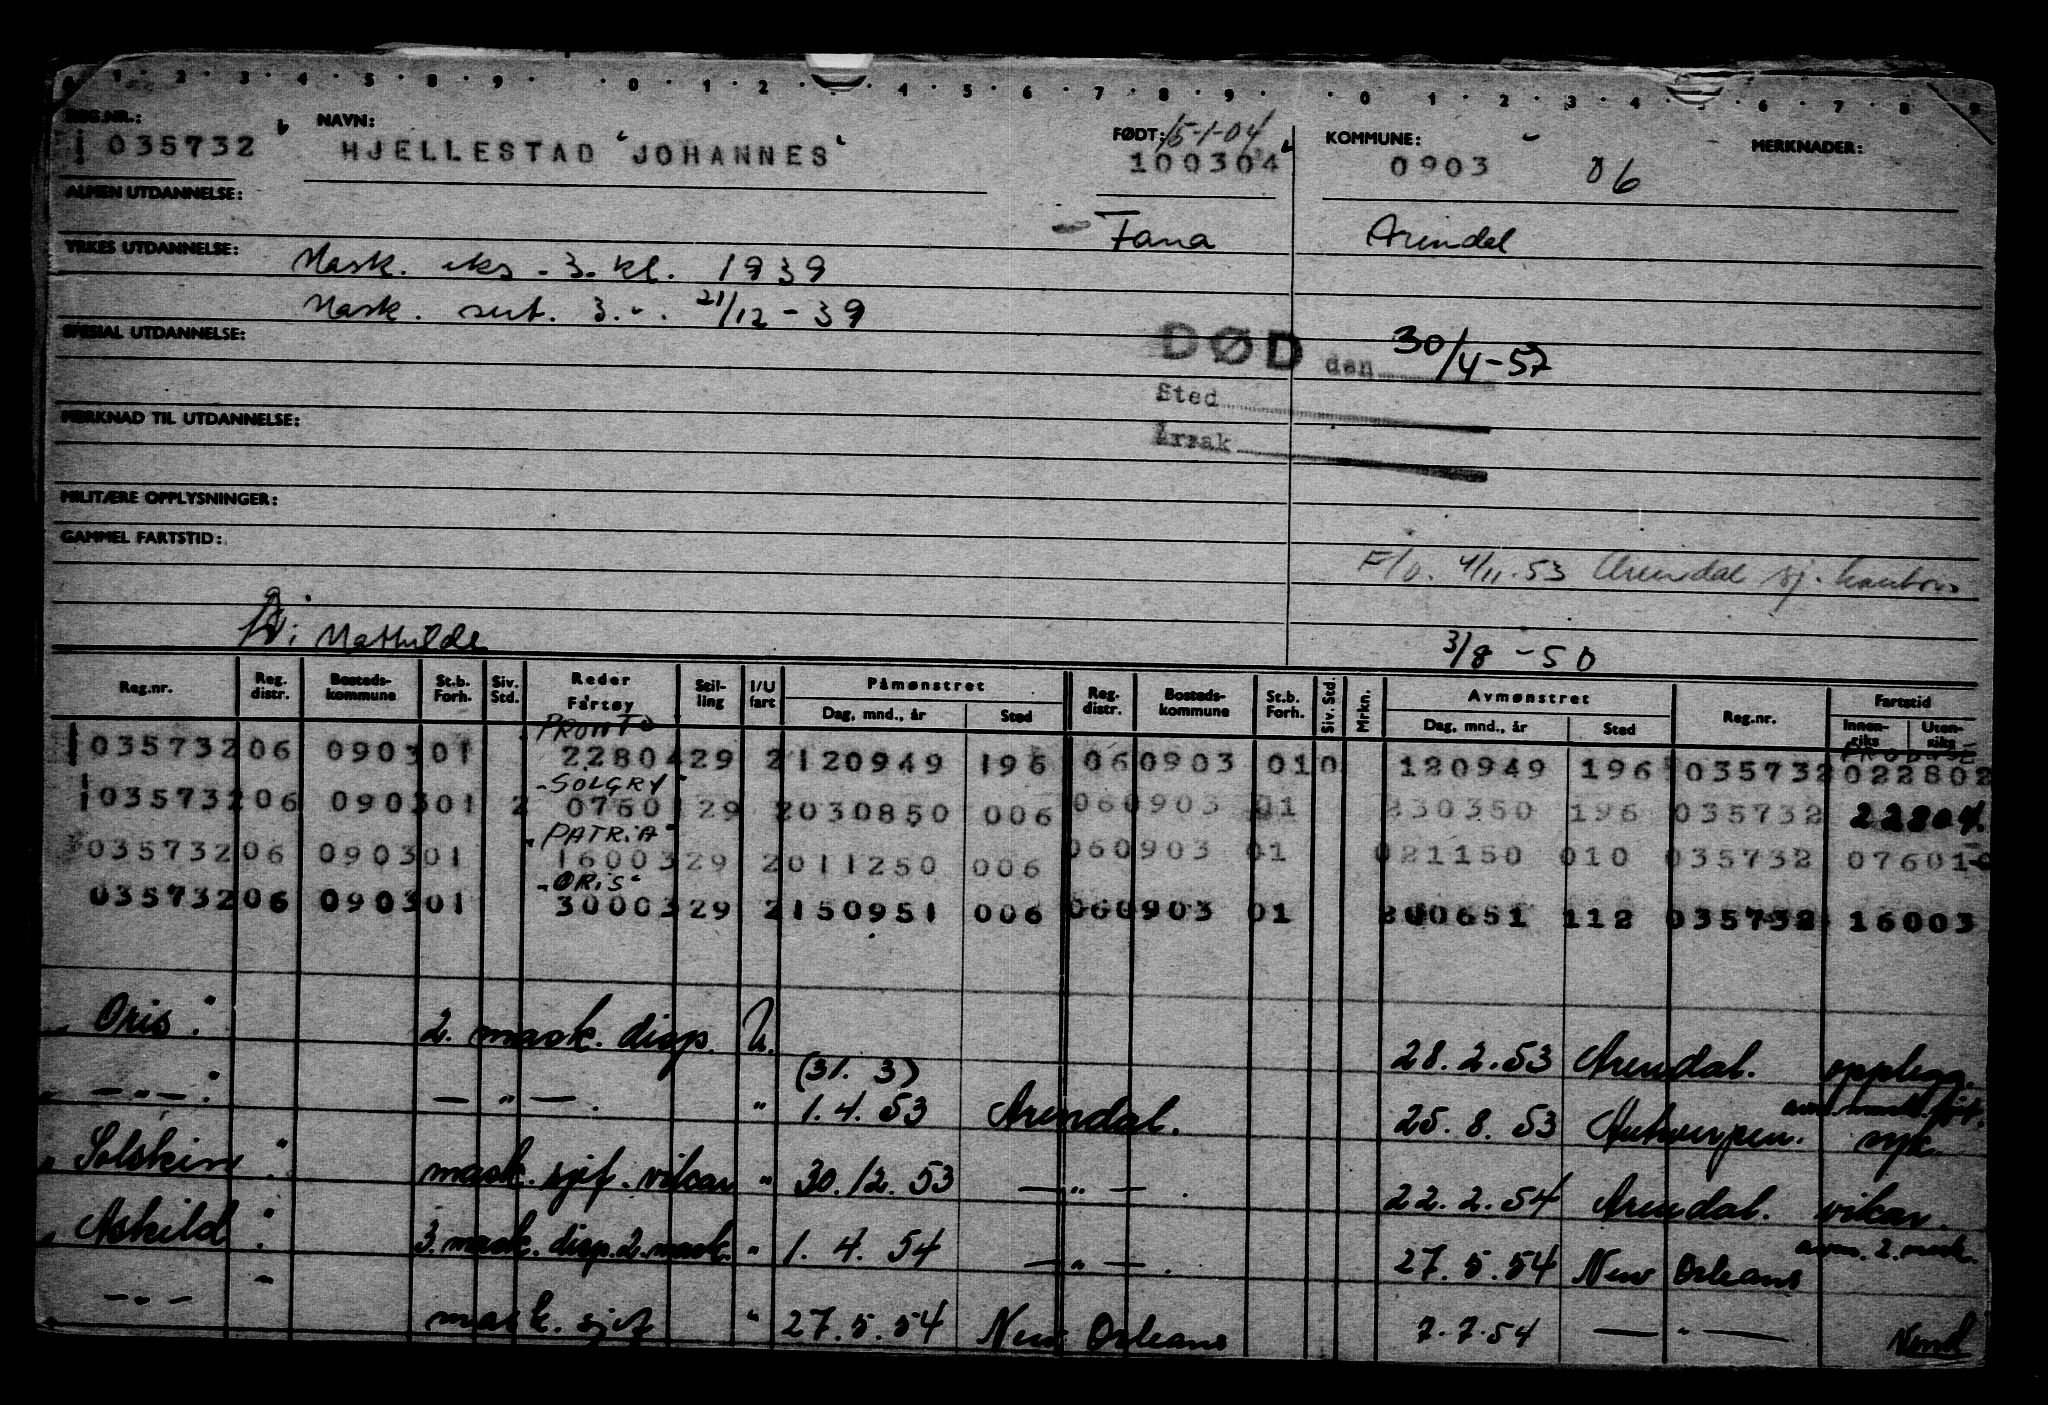 0 · 1 · 2 · 3 · 4 · 5 · 8 · 9 · 0 · 1 · 2 · 4 · 5 · 6 · 7 · 8 · 9 · 0 · 1 · 2 · 3 · 4 · 6 · 7 · 8 · 9
REG.NR.: NAVN: FØDT: 15-1-04 KOMMUNE: MERKNADER:
035732 HJELLESTAD JOHANNES 100304 0903 06
ALMEN UTDANNELSE:
Fana Arendal
YRKES UTDANNELSE: Mask. eks. 3. kl. 1939
Mask. sert. 3. -"- 21/12-39
SPESIAL UTDANNELSE:
DØD den 30/4-57
Sted
MERKNAD TIL UTDANNELSE:
Årsak
MILITÆRE OPPLYSNINGER:
GAMMEL FARTSTID:
F/o. 4/11.53 Arendal sj. kontor
Mathilde
3/8-50
Reg.nr. Reg. distr. Bosteds-kommune St.b. Forh. Siv. Std. Reder Fartøy Stil-ling I/U fart Påmønstret Dag, mnd., år Sted Reg. distr. Bosteds-kommune St.b. Forh. Siv. Std. Mrkn. Avmønstret Dag, mnd., år Sted Reg.nr. Fartstid Innen-riks Uten-riks
PRONTO
035732 06 0903 01 22804 29 2 120949 196 06 0903 01 0 120949 196 035732 022802
"SOLGRY"
035732 06 0903 01 2 0760 29 2 030850 006 06 0903 01 330350 196 035732 22804
"PATRIA"
035732 06 0903 01 16003 29 2 011250 006 06 0903 01 021150 010 035732 07601
"ORIS"
035732 06 0903 01 30003 29 2 150951 006 06 0903 01 300651 112 035732 16003
"Oris." 2. mask. disp. U. 28.2.53 Arendal. opplegg.
(31. 3)
" — " — ." — " — . " 1.4.53 Arendal. 25.8.53 Antwerpen. syk.
"Solskin". mask. sjef. vikar " 30.12.53 — " — . 22.2.54 Arendal. vikar.
"Askild". 3. mask. disp. 2. mask. " 1.4.54 — " — . 27.5.54 New Orleans avm. 2. mask.
— " — mask. sjef " 27.5.54 New Orleans 7.7.54 — " —